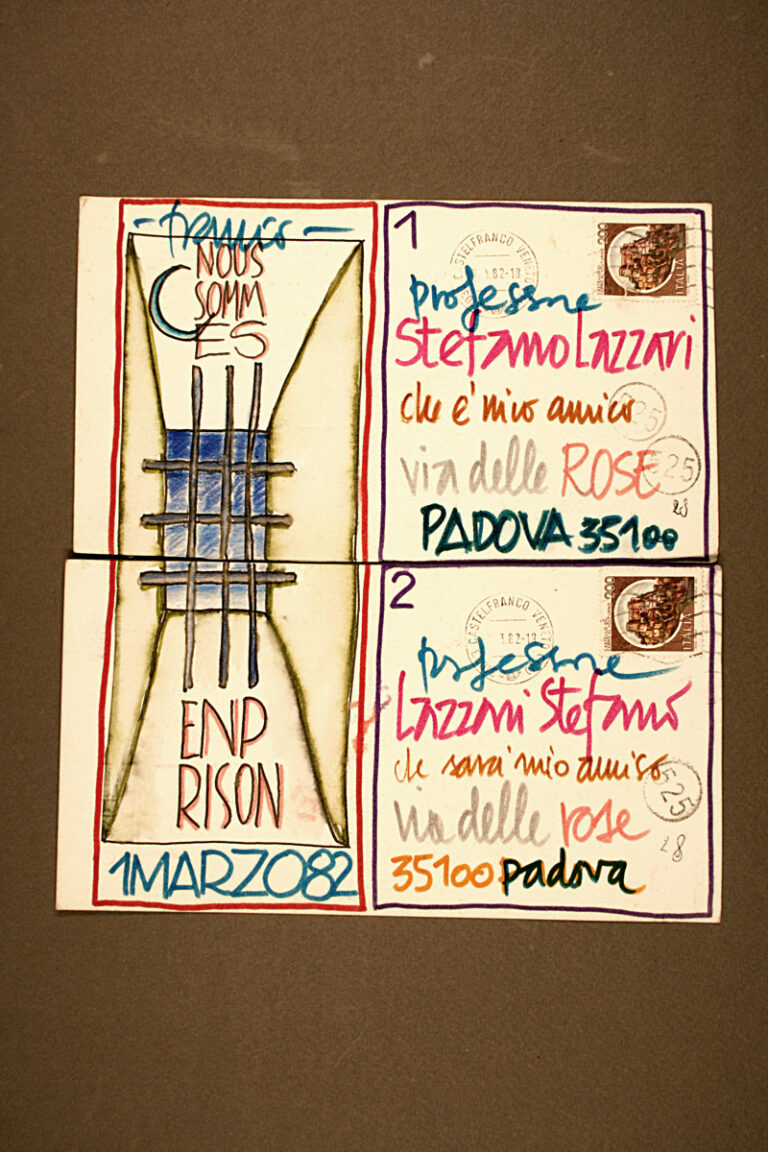 - franco -
NOUS
SOMM
ES
ENP
RISON
1MARZO82
1
CASTELFRANCO VENETO
3.82-18
200
ITALIA
professore
Stefano Lazzari
che e' mio amico
via delle ROSE
525
525
28
PADOVA 35100
2
CASTELFRANCO VENETO
3.82-18
200
ITALIA
professore
Lazzari Stefano
che sarai mio amico
via delle rose
525
28
35100 padova